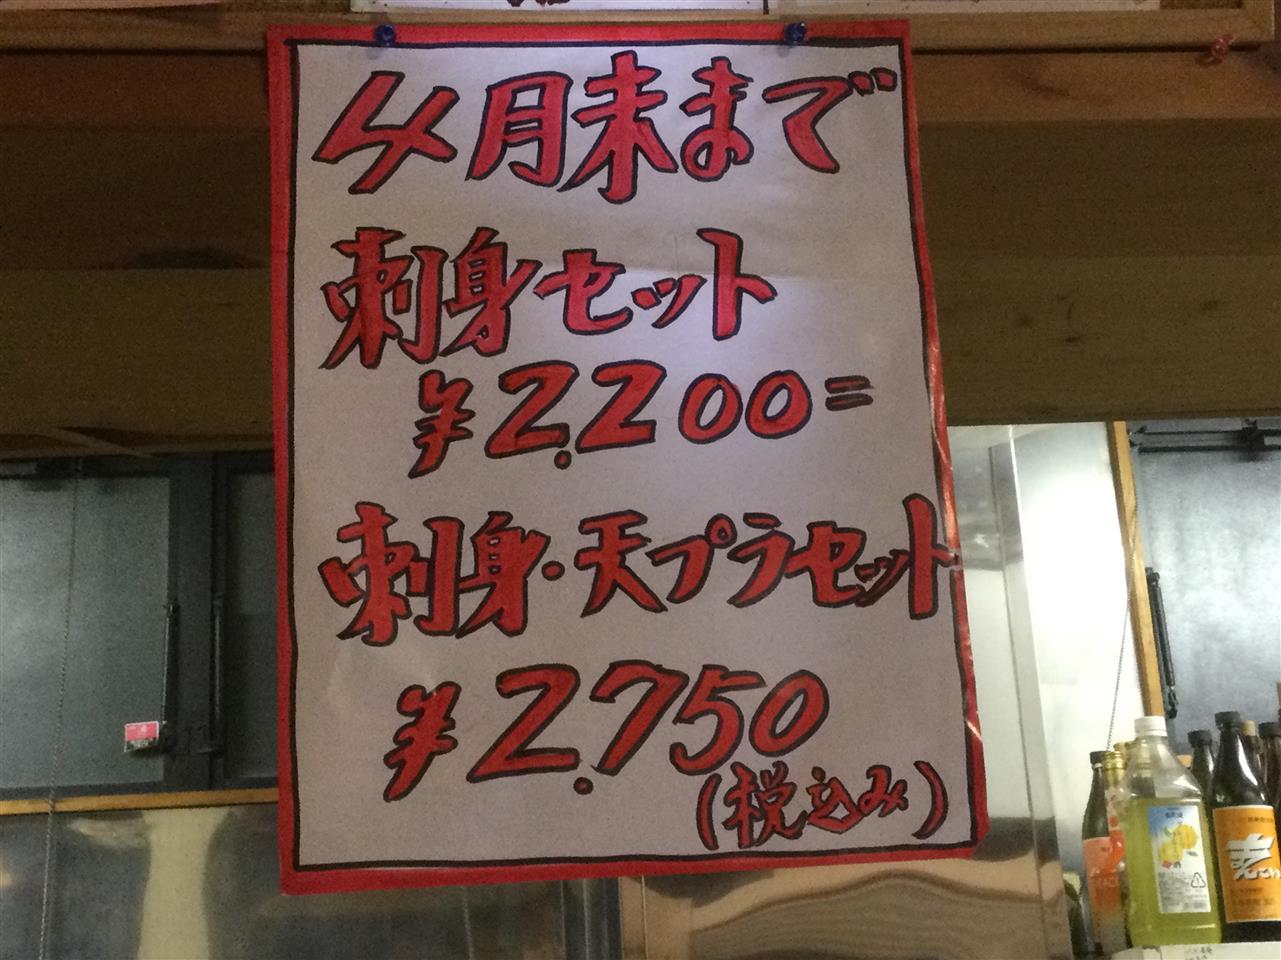 4月末まで
刺身セット
¥2.200=
刺身・天プラセット
¥2.750
(税込み)